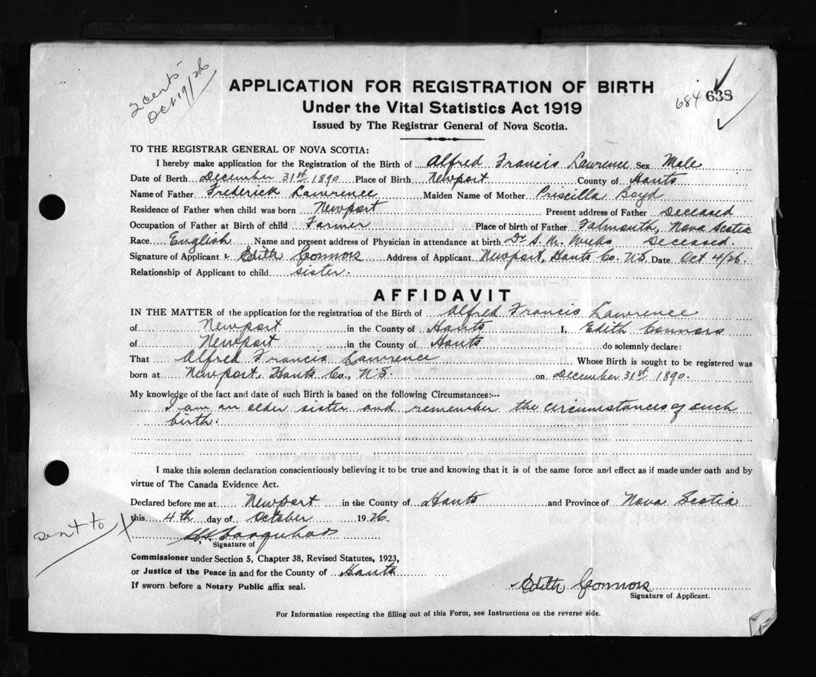 2 cents
Oct 19/26
APPLICATION FOR REGISTRATION OF BIRTH
684 638
Under the Vital Statistics Act 1919
Issued by The Registrar General of Nova Scotia.
TO THE REGISTRAR GENERAL OF NOVA SCOTIA:
I hereby make application for the Registration of the Birth of Alfred Francis Lawrence Sex Male
Date of Birth December 31st 1890 Place of Birth Newport County of Hants
Name of Father Frederick Lawrence Maiden Name of Mother Priscilla Boyd
Residence of Father when child was born Newport Present address of Father Deceased
Occupation of Father at Birth of child Farmer Place of birth of Father Falmouth, Nova Scotia
Race English Name and present address of Physician in attendance at birth Dr Weeks Deceased.
Signature of Applicant Edith Connors Address of Applicant Newport, Hants Co. N.S. Date Oct 4/26.
Relationship of Applicant to child sister.
AFFIDAVIT
IN THE MATTER of the application for the registration of the Birth of Alfred Francis Lawrence
of Newport in the County of Hants I, Edith Connors
of Newport in the County of Hants do solemnly declare:
That Alfred Francis Lawrence Whose Birth is sought to be registered was
born at Newport, Hants Co., N.S. on December 31st 1890.
My knowledge of the fact and date of such Birth is based on the following Circumstances:—
I am an older sister and remember the circumstances of such
birth.
I make this solemn declaration conscientiously believing it to be true and knowing that it is of the same force and effect as if made under oath and by
virtue of The Canada Evidence Act.
Declared before me at Newport in the County of Hants and Province of Nova Scotia
this 4th day of October 1926
sent to X
Signature of
Commissioner under Section 5, Chapter 38, Revised Statutes, 1923,
or Justice of the Peace in and for the County of Hants
If sworn before a Notary Public affix seal.
Edith Connors
Signature of Applicant.
For Information respecting the filling out of this Form, see Instructions on the reverse side.